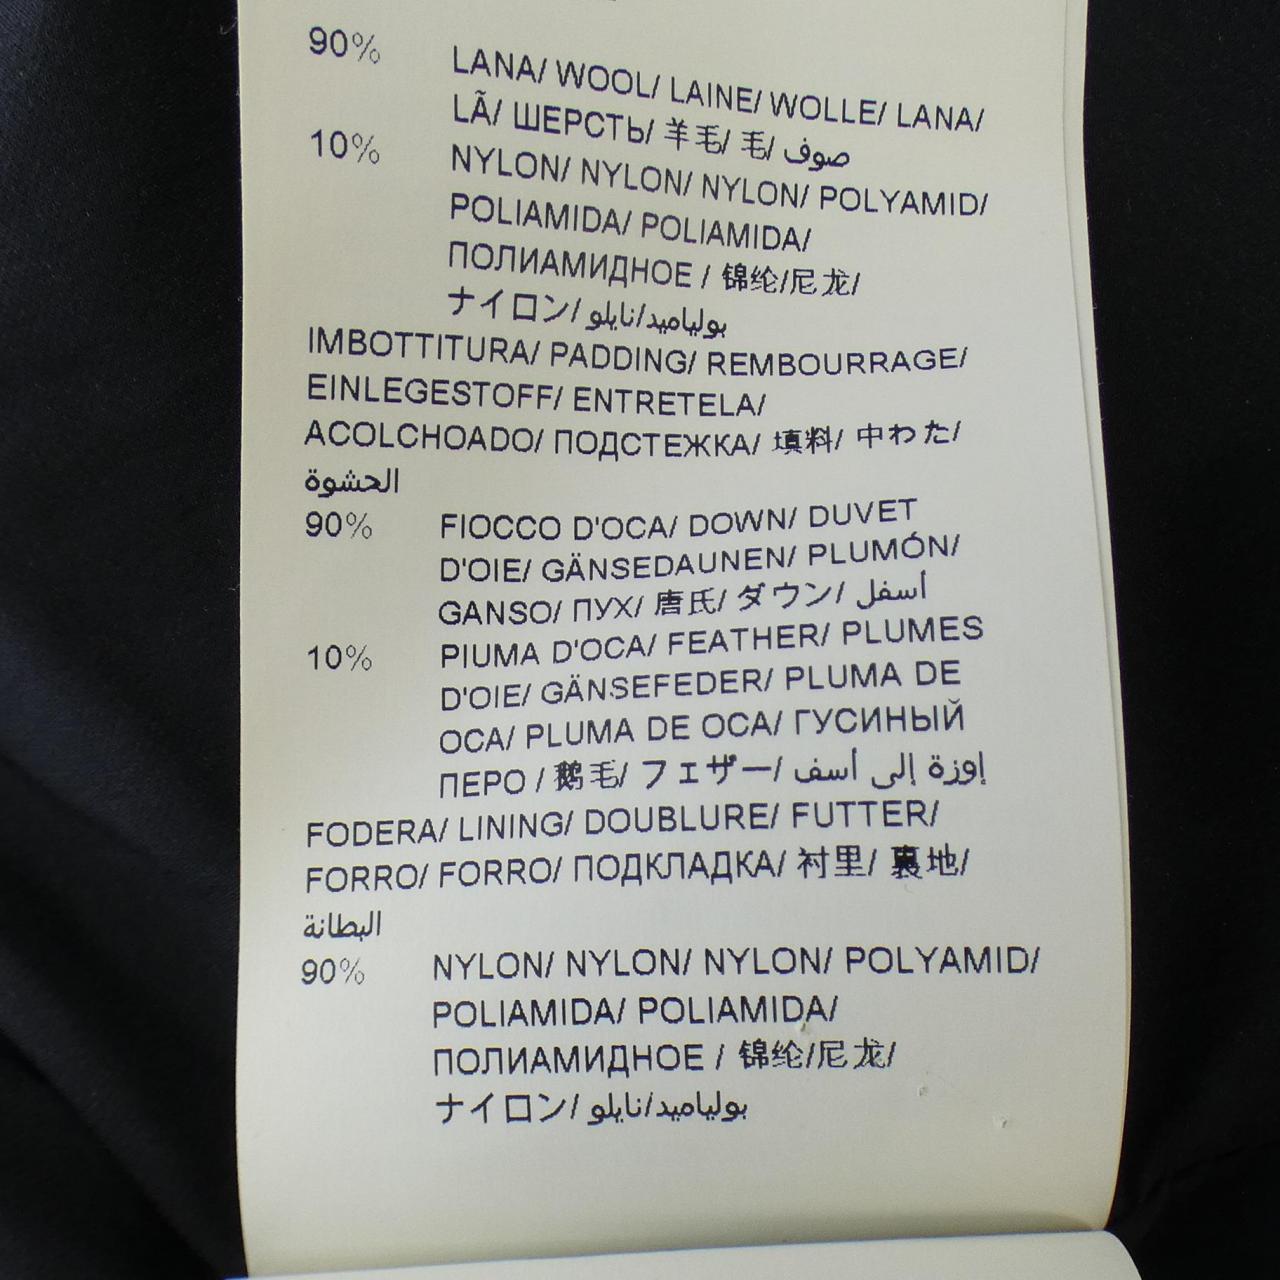 90% LANA/ WOOL/ LAINE/ WOLLE/ LANA/
LÃ/ ШЕРСТЬ/ 羊毛/ 毛/ صوف
10% NYLON/ NYLON/ NYLON/ POLYAMID/
POLIAMIDA/ POLIAMIDA/
ПОЛИАМИДНОЕ / 锦纶/尼龙/
ナイロン/ بولياميد/نايلو
IMBOTTITURA/ PADDING/ REMBOURRAGE/
EINLEGESTOFF/ ENTRETELA/
ACOLCHOADO/ ПОДСТЕЖКА/ 填料/ 中わた/
الحشوة
90% FIOCCO D'OCA/ DOWN/ DUVET
D'OIE/ GÄNSEDAUNEN/ PLUMÓN/
GANSO/ ПУХ/ 唐氏/ ダウン/ أسفل
10% PIUMA D'OCA/ FEATHER/ PLUMES
D'OIE/ GÄNSEFEDER/ PLUMA DE
OCA/ PLUMA DE OCA/ ГУСИНЫЙ
ПЕРО / 鹅毛/ フェザー/ إوزة إلى أسف
FODERA/ LINING/ DOUBLURE/ FUTTER/
FORRO/ FORRO/ ПОДКЛАДКА/ 衬里/ 裏地/
البطانة
90% NYLON/ NYLON/ NYLON/ POLYAMID/
POLIAMIDA/ POLIAMIDA/
ПОЛИАМИДНОЕ / 锦纶/尼龙/
ナイロン/ بولياميد/نايلو